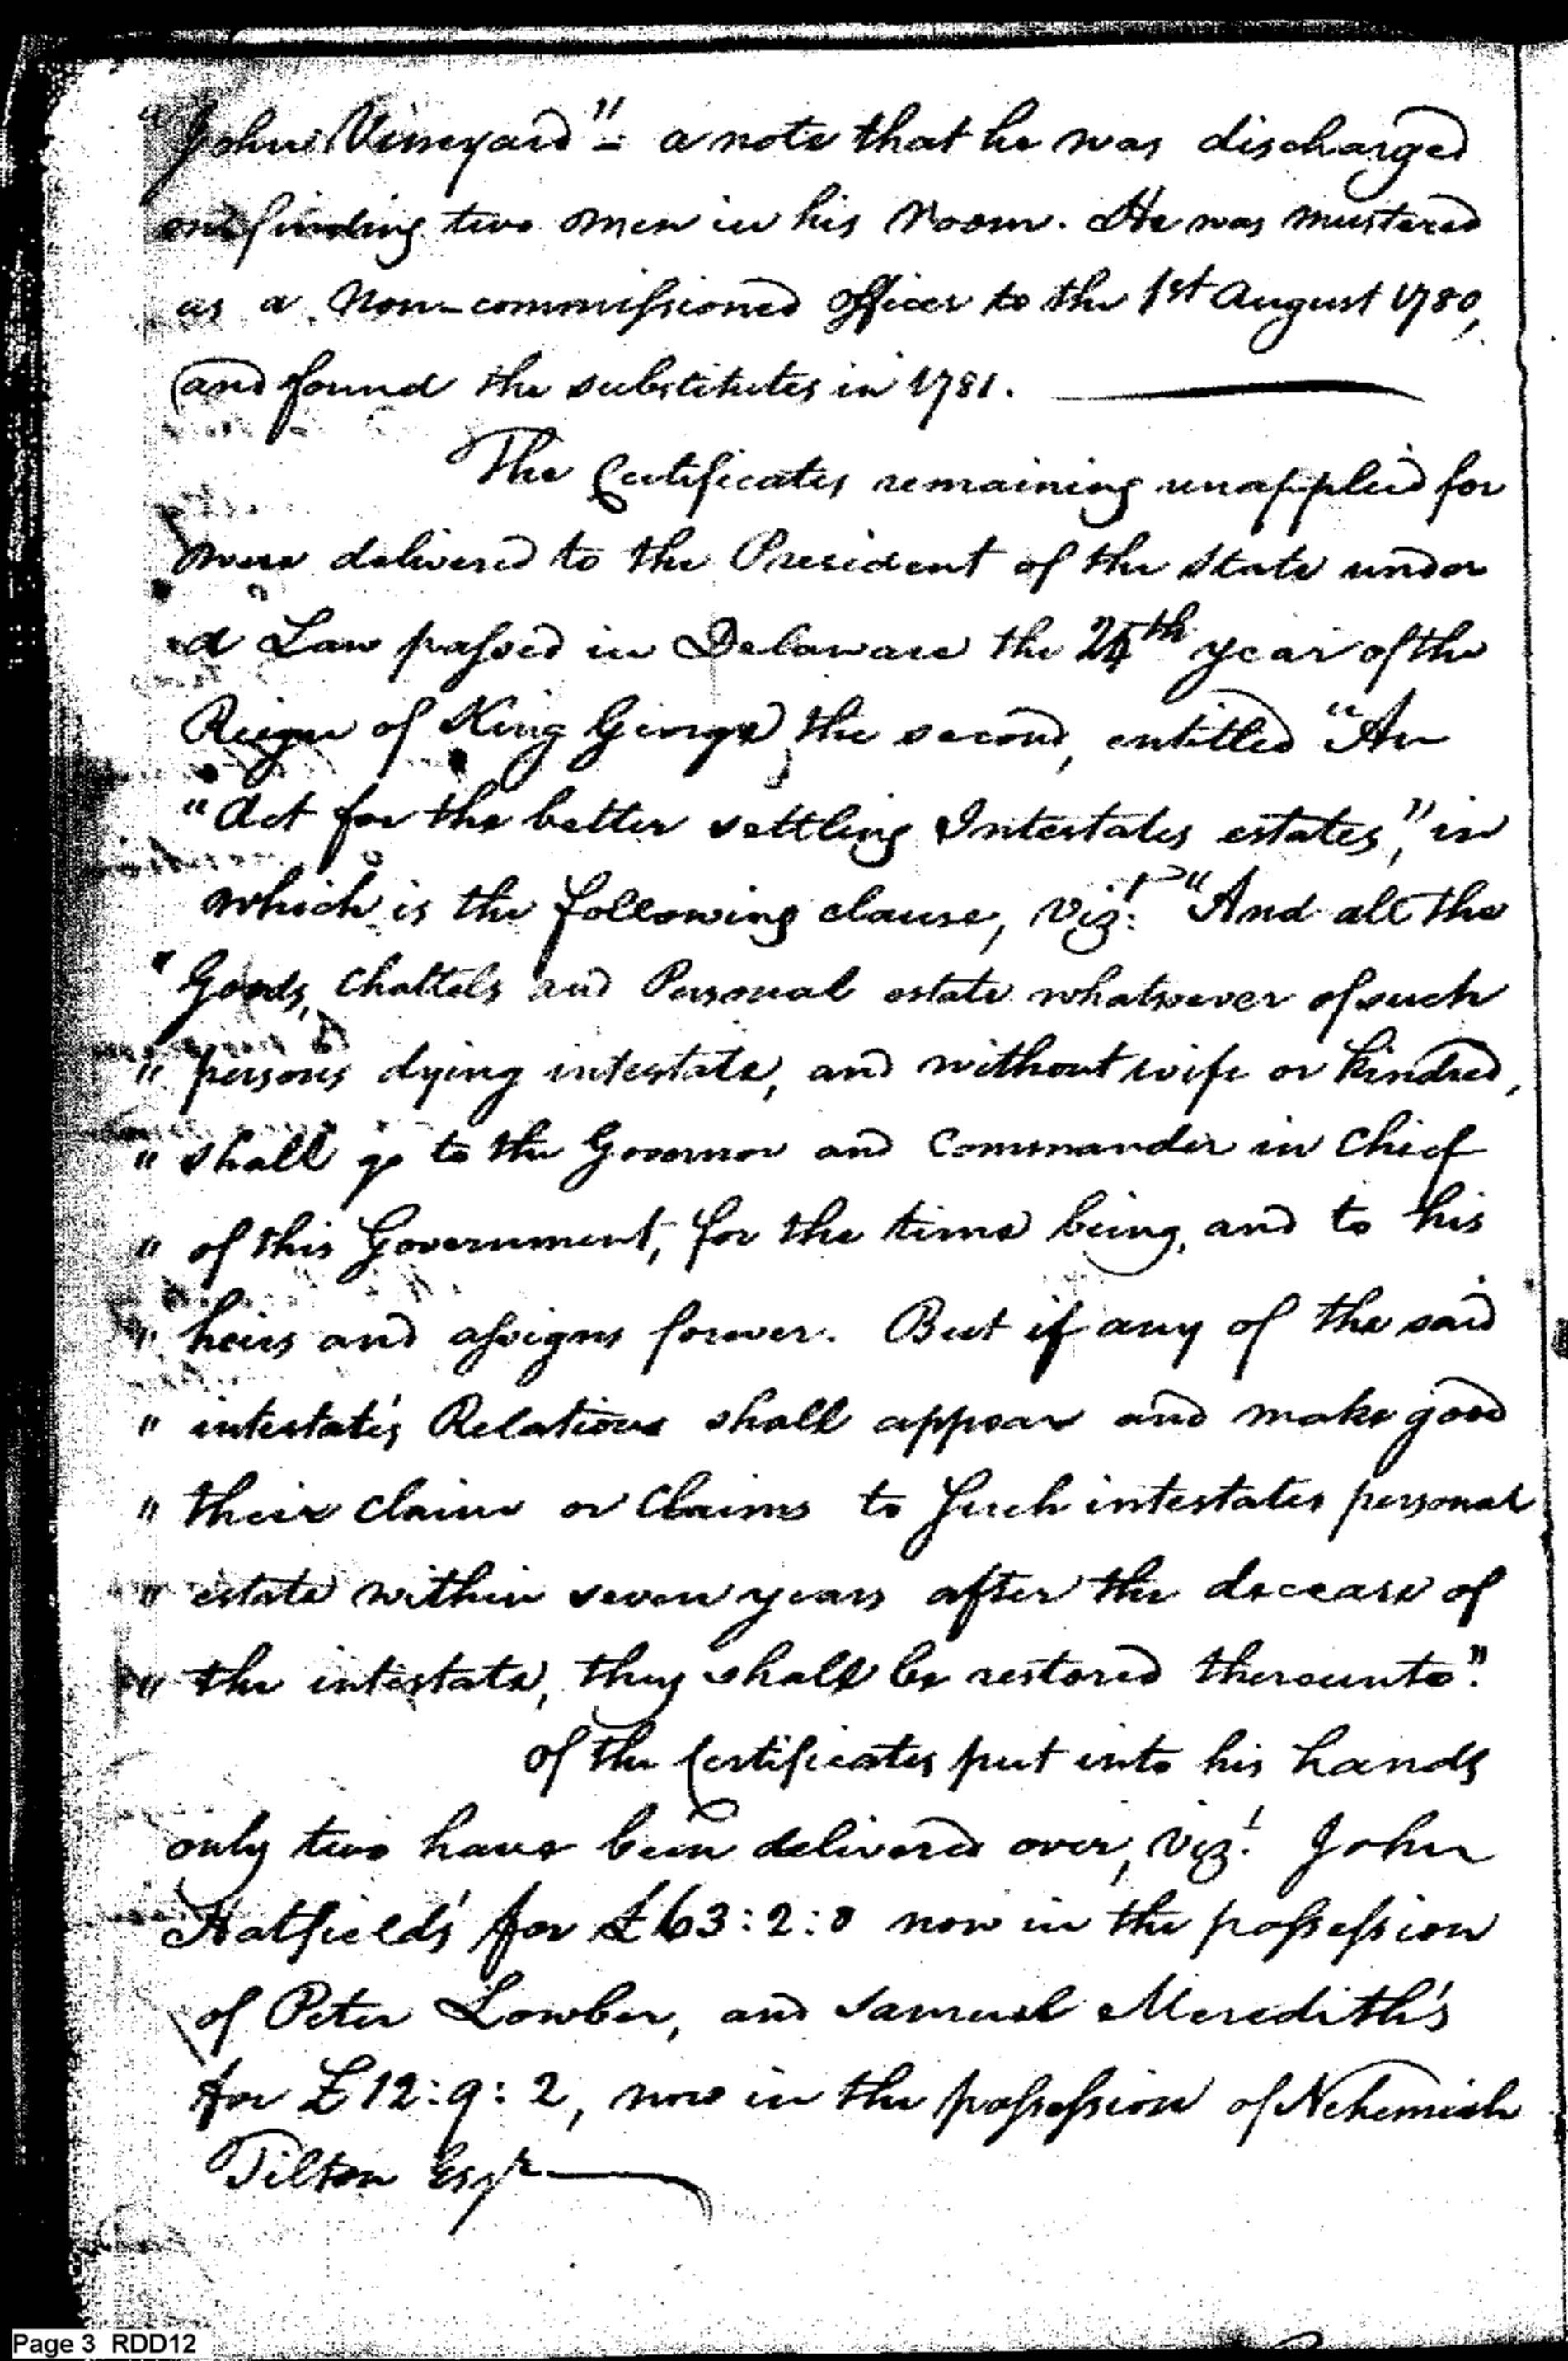 "John Vineyard" - a note that he was discharged
on finding two men in his room. He was mustered
as a non-commissioned officer to the 1st August 1780,
and found the substitutes in 1781.
The Certificates remaining unapplied for
were delivered to the President of the State under
a Law passed in Delaware the 24th year of the
Reign of King George the second, entitled "An
"Act for the better settling Intestates estates," in
which is the following clause, Vizt. "And all the
"Goods, Chattels and Personal estate whatsoever of such
"persons dying intestate, and without wife or kindred,
"shall go to the Governor and Commander in Chief
"of this Government, for the time being, and to his
"heirs and assigns forever. But if any of the said
"intestate's Relations shall appear and make good
"their claim or Claims to such intestates personal
"estate within seven years after the decease of
"the intestate, they shall be restored thereunto".
Of the Certificates put into his hands
only two have been delivered over, Vizt. John
Hatfield's for £63:2:8 now in the possession
of Peter Lowber, and Samuel Meredith's
for £12:9:2, now in the possession of Nehemiah
Tilton Esqr
Page 3 RDD12